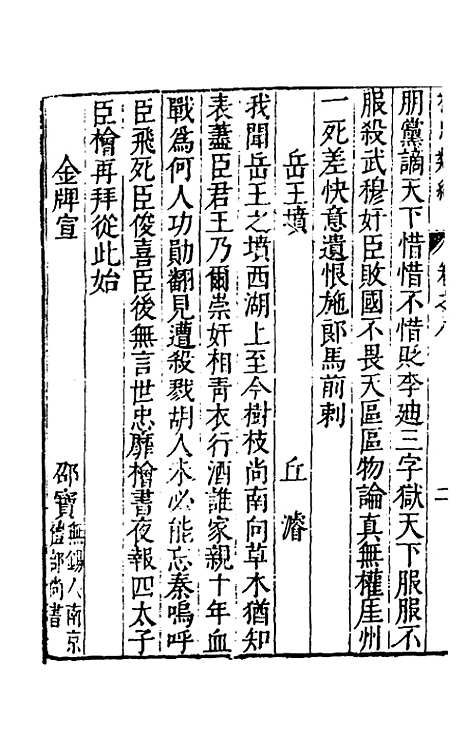 卷之八
二
朋黨謫天下惜惜不惜貶李廸三字獄天下服服不
服殺武穆奸臣敗國不畏天區區物論真無權厓州
一死差快意遺恨施郎馬前刺
岳王墳 丘濬
我聞岳王之墳西湖上至今樹枝尚南向草木猶知
表藎臣君王乃爾崇奸相青衣行酒誰家親十年血
戰為何人功勛翻見遭殺戮胡人未必能忘秦嗚呼
臣飛死臣俊喜臣後無言世忠靡檜書夜報四太子
臣檜再拜從此始
金牌宣 邵寶 無錫人南京禮部尚書